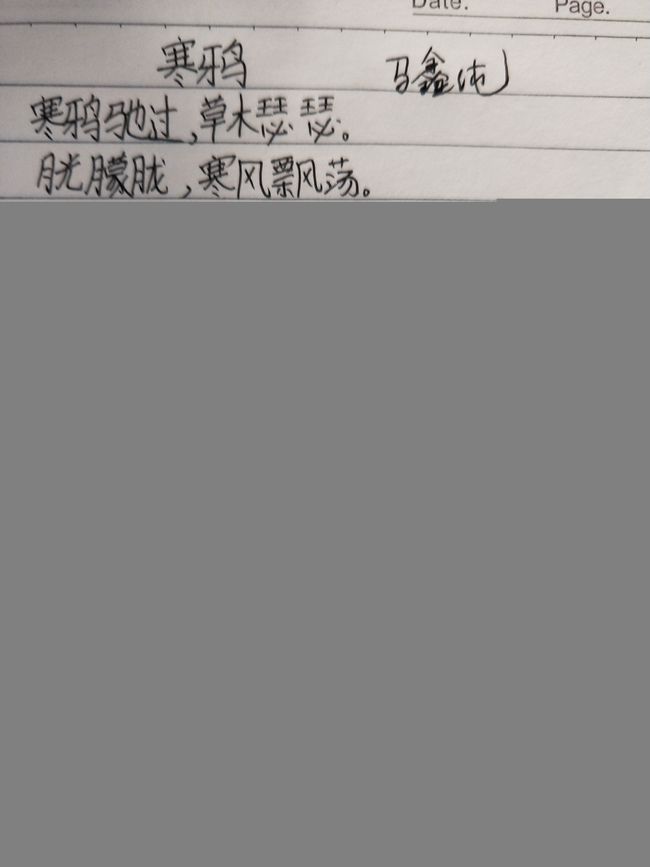 Date. Page.
寒鸦 马鑫
寒鸦驰过,草木瑟瑟。
月光朦胧,寒风飘荡。